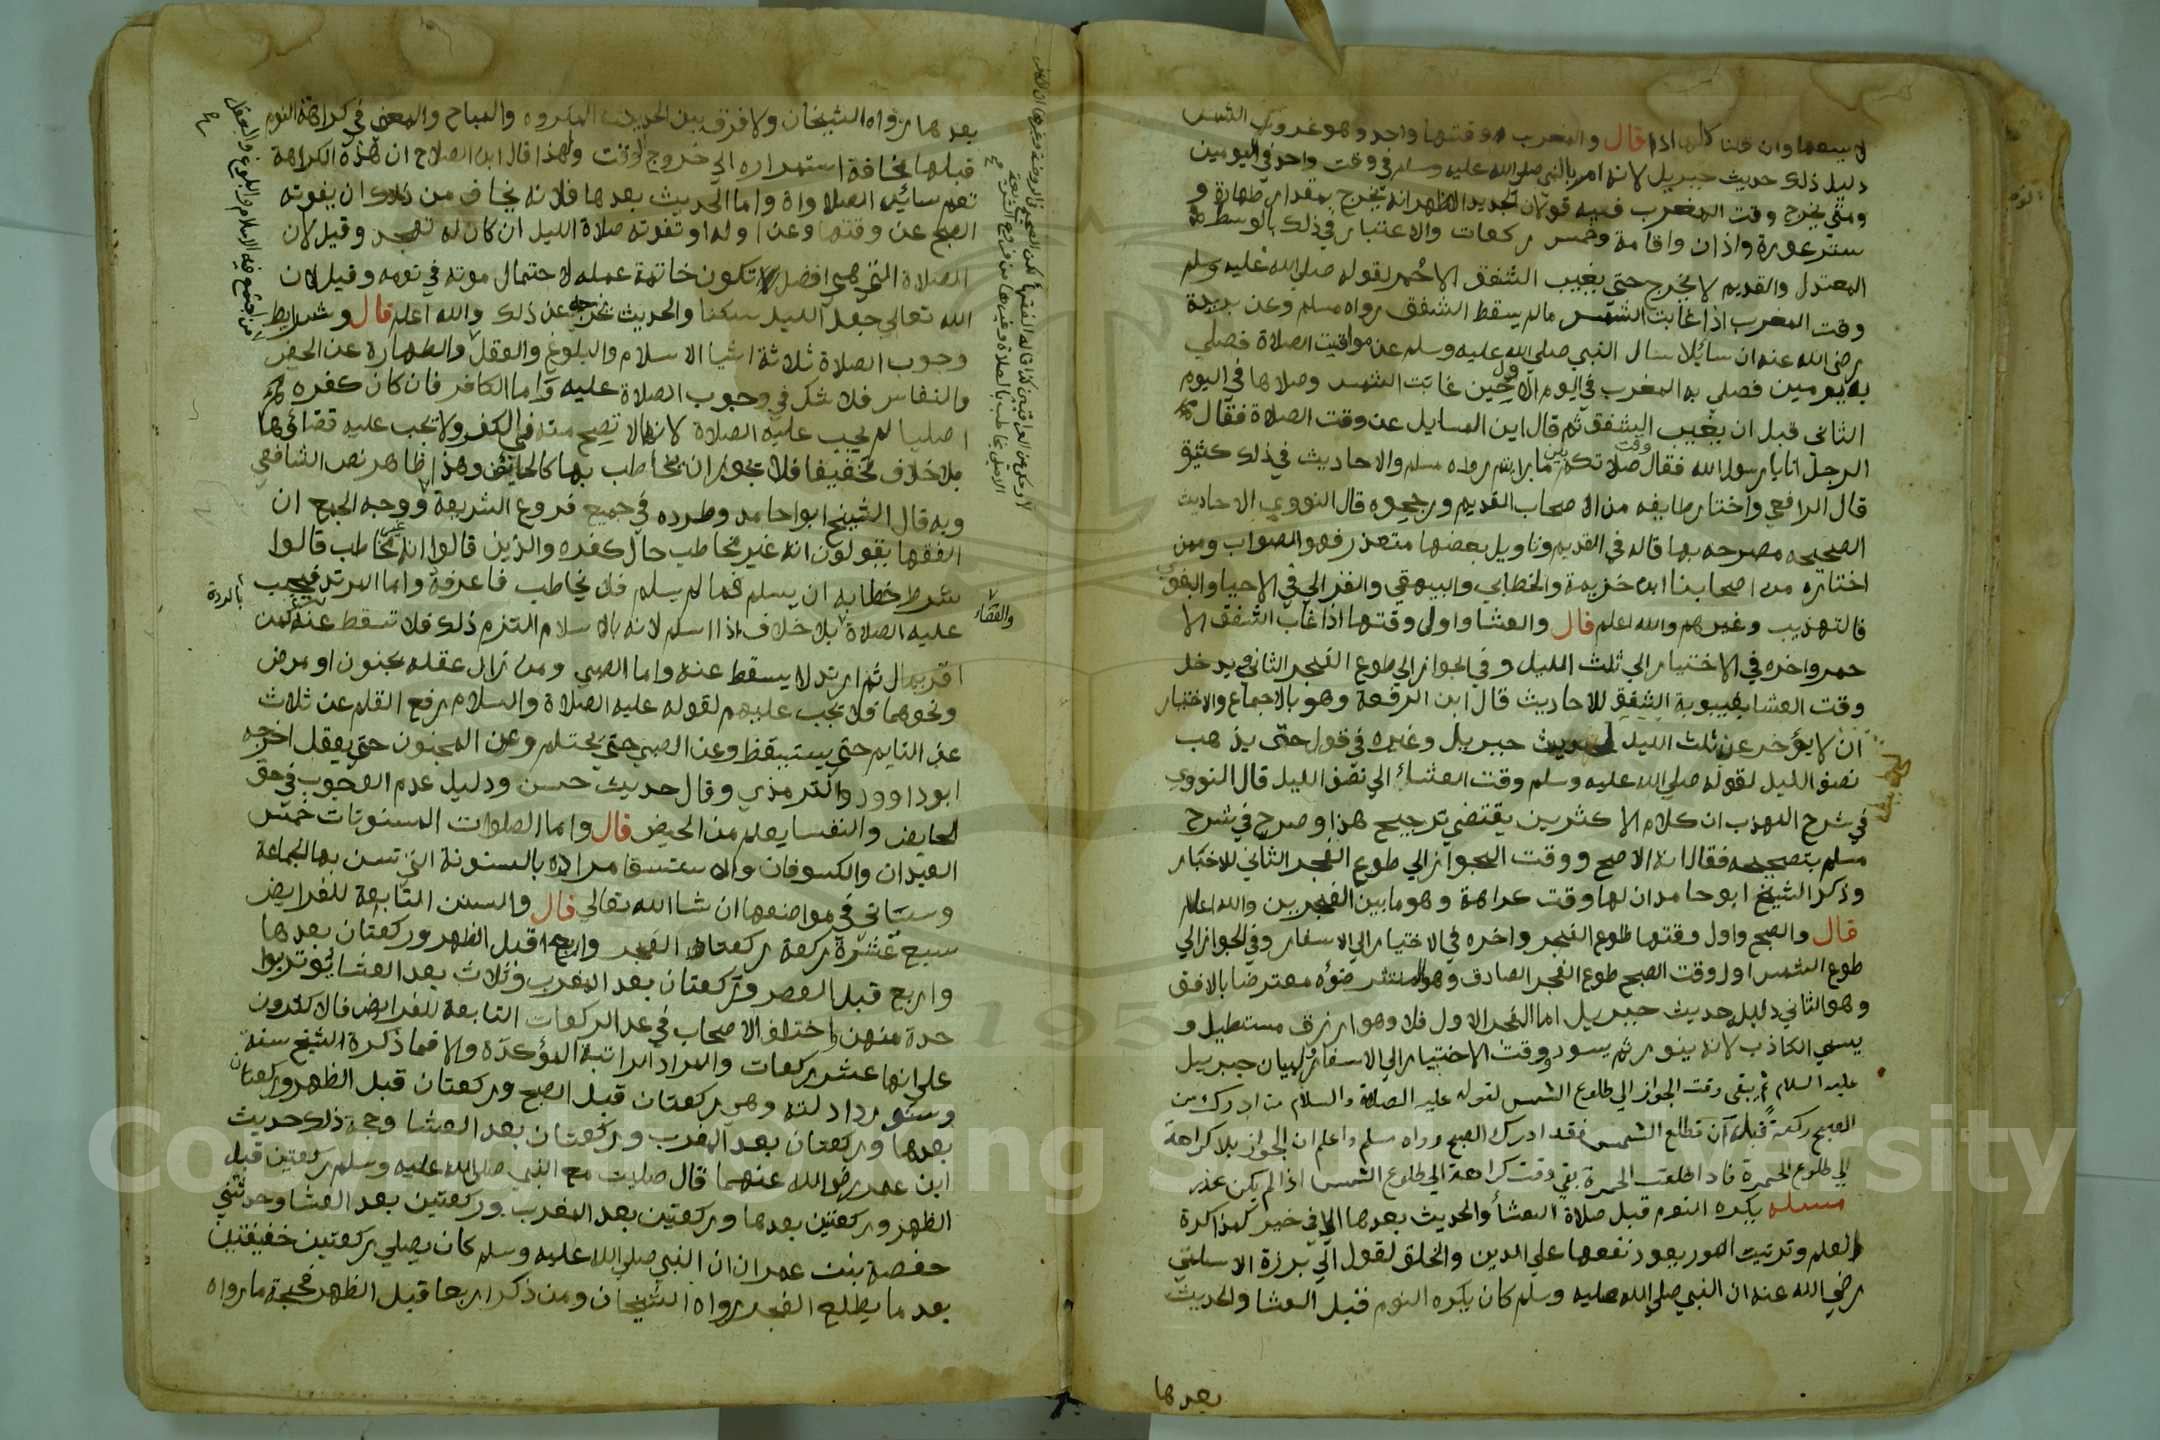 لا يسعها وان قلنا كلها اذا قال والمغرب ووقتها واحد وهو غروب الشمس
دليل ذلك حديث جبريل لانه امر بالنبي صلى الله عليه وسلم في وقت واحد في اليومين
ومتى يخرج وقت المغرب فيه قولان الجديد الاظهر انه يخرج بمقدار طهارة و
ستر عورة واذان واقامة وخمس ركعات والاعتبار في ذلك بالوسط
المعتدل والقديم لا يخرج حتى يغيب الشفق الاحمر لقوله صلى الله عليه وسلم
وقت المغرب اذا غابت الشمس مالم يسقط الشفق رواه مسلم وعن بريدة
رضى الله عنه ان سائلا سال النبي صلى الله عليه وسلم عن مواقيت الصلاة فصلى
به يومين فصلى به المغرب في اليوم الاول حين غابت الشمس وصلاها في اليوم
الثانى قبل ان يغيب الشفق ثم قال اين السايل عن وقت الصلاة فقال
الرجل انا يا رسول الله فقال وقت صلاتكم بين ما رايتم رواه مسلم والاحاديث في ذلك كثيرة
قال الرافعي واختار طايفه من الاصحاب القديم ورجحوه قال النووي الاحاديث
الصحيحه مصرحه بها قاله في القديم وتاويل بعضها متعذر فهو الصواب وممن
اختاره من اصحابنا ابن خزيمة والخطابي والبيهقي والغزالي في الاحيا والبغوي
في التهذيب وغيرهم والله اعلم قال والعشا واول وقتها اذا غاب الشفق الا
حمر واخره في الاختيار الي ثلث الليل وفي الجواز الي طلوع الفجر الثاني ويدخل
وقت العشا بغيبوبة الشفق للاحاديث قال ابن الرفعة وهو بالاجماع والاختيار
ان لا يؤخر عن ثلث الليل لحديث جبريل وغيره في قول حتى يذهب
نصف الليل لقوله صلى الله عليه وسلم وقت العشاء الي نصف الليل قال النووي
في شرح المهذب ان كلام الاكثرين يقتضي ترجيح هذا وصرح في شرح
مسلم بتصحيحه فقال انه الاصح ووقت الجواز الي طلوع الفجر الثاني للاخبار
وذكر الشيخ ابو حامد ان لها وقت كراهة وهو ما بين الفجرين والله اعلم
قال والصبح واول وقتها طلوع الفجر واخره في الاختيار الي الاسفار وفي الجواز الي
طلوع الشمس اول وقت الصبح طلوع الفجر الصادق وهو المنتشر ضوؤه معترضا بالافق
وهو الثاني دليله حديث جبريل اما الفجر الاول فلا وهو ازرق مستطيل و
يسمي الكاذب لانه ينور ثم يسود ووقت الاختيار الي الاسفار لبيان جبريل
عليه السلام ثم يبقى وقت الجواز الي طلوع الشمس لقوله عليه الصلاة والسلام من ادرك من
الصبح ركعة قبل ان تطلع الشمس فقد ادرك الصبح رواه مسلم واعلم ان الجواز بلا كراهة
الي طلوع الحمرة فاذا طلعت الحمرة بقي وقت كراهة الي طلوع الشمس اذا لم يكن عذر
مسله يكره النوم قبل صلاة العشا والحديث بعدها الا في خير كمذاكرة
العلم وترتيب امور يعود نفعها علي الدين والخلق لقول ابي برزة الاسلمي
رضي الله عنه ان النبي صلى الله عليه وسلم كان يكره النوم قبل العشا والحديث
بعدها
لحديث
بعدها رواه الشيخان ولا فرق بين الحديث المكروه والمباح والمعنى في كراهة النوم
قبلها مخافة استمراره الي خروج الوقت ولهذا قال ابن الصلاح ان هذه الكراهة
تعم سائر الصلاوات واما الحديث بعدها فلانه يخاف من ذلك ان يفوته
الصبح عن وقتها وعن اوله او تفوته صلاة الليل ان كان له تهجد وقيل لان
الصلاة التي هي افضل لا تكون خاتمة عمله لاحتمال موته في نومه وقيل لان
الله تعالي جعل الليل سكنا والحديث يخرجه عن ذلك والله اعلم قال وشرايط
وجوب الصلاة ثلاثة اشيا الاسلام والبلوغ والعقل والطهارة عن الحيض
والنفاس فلا شك في وجوب الصلاة عليه واما الكافر فان كان كفره
اصليا لم يجب عليه الصلاة لانها لا تصح منه في الكفر ولا تجب عليه قضاؤها
بلا خلاف تخفيفا فلا يجوز ان يخاطب بها كالحائض وهذا ظاهر نص الشافعي
وبه قال الشيخ ابو احامد وطرده في جميع فروع الشريعة ووجه الجمع ان
الفقها يقولون انه غير مخاطب حال كفره والذين قالوا انه مخاطب قالوا
شرط خطابه ان يسلم فما لم يسلم فلا يخاطب فاعرفه واما المرتد فيجب
عليه الصلاة بلا خلاف اذا اسلم لانه بالاسلام التزم ذلك فلا تسقط عنه كمن
اقر بمال ثم ارتد لا يسقط عنه واما الصبي ومن زال عقله بجنون او مرض
ونحوهما فلا يجب عليهم لقوله عليه الصلاة والسلام رفع القلم عن ثلاث
عن النايم حتى يستيقظ وعن الصبي حتى يحتلم وعن المجنون حتى يعقل اخرجه
ابو داوود والترمذي وقال حديث حسن ودليل عدم الوجوب في حق
الحايض والنفسا يعلم من الحيض قال واما الصلوات المسنونات خمس
العيدان والكسوفان والاستسقا مراده بالمسنونة التي تسن بها الجماعة
وستاتي في مواضعها ان شا الله تعالي قال والسنن التابعة للفرايض
سبع عشرة ركعة ركعتان الفجر واربع قبل الظهر وركعتان بعدها
واربع قبل العصر وركعتان بعد المغرب وثلاث بعد العشا يوتر بوا
حدة منهن واختلف الاصحاب في عدد الركعات التابعة للفرايض فالاكثرون
علي انها عشر ركعات والمراد الراتبة المؤكدة والا فما ذكره الشيخ سنة
وستورد ادلته وهي ركعتان قبل الصبح وركعتان قبل الظهر وركعتان
بعدها وركعتان بعد المغرب وركعتان بعد العشا وحجة ذلك حديث
ابن عمر رضى الله عنهما قال صليت مع النبي صلى الله عليه وسلم ركعتين قبل
الظهر وركعتين بعدها وركعتين بعد المغرب وركعتين بعد العشا وحدثتني
حفصة بنت عمر ان النبي صلى الله عليه وسلم كان يصلي ركعتين خفيفتين
بعد ما يطلع الفجر رواه الشيخان ومن ذكر اربعا قبل الظهر فحجته ما رواه
من اجتمع فيه الاسلام والبلوغ والعقل
بالردة
والقضاء
Copyright © King Saud University
195